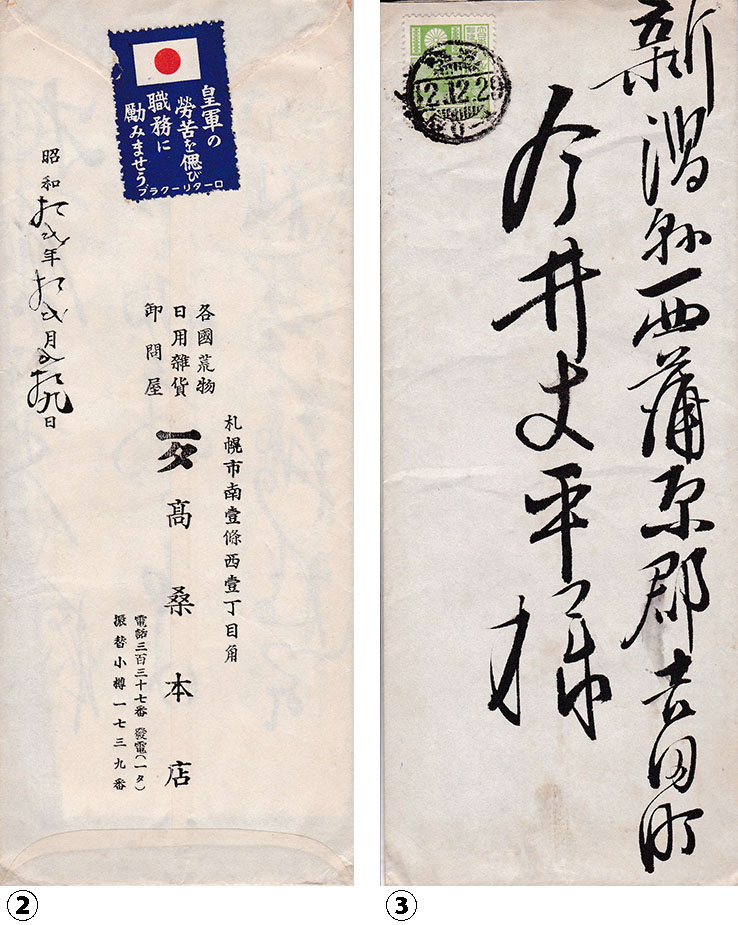 皇軍の
勞苦を偲び
職務に
勵みませう
ロータリークラブ
各國荒物
日用雜貨
卸問屋
札幌市南壹條西壹丁目角
髙桑本店
電話三百三十七番 發電(一タ)
振替小樽一七三九番
昭和拾弐年拾弐月廿九日
②
12.12.29
新潟縣西蒲原郡吉田町
今井丈平様
③